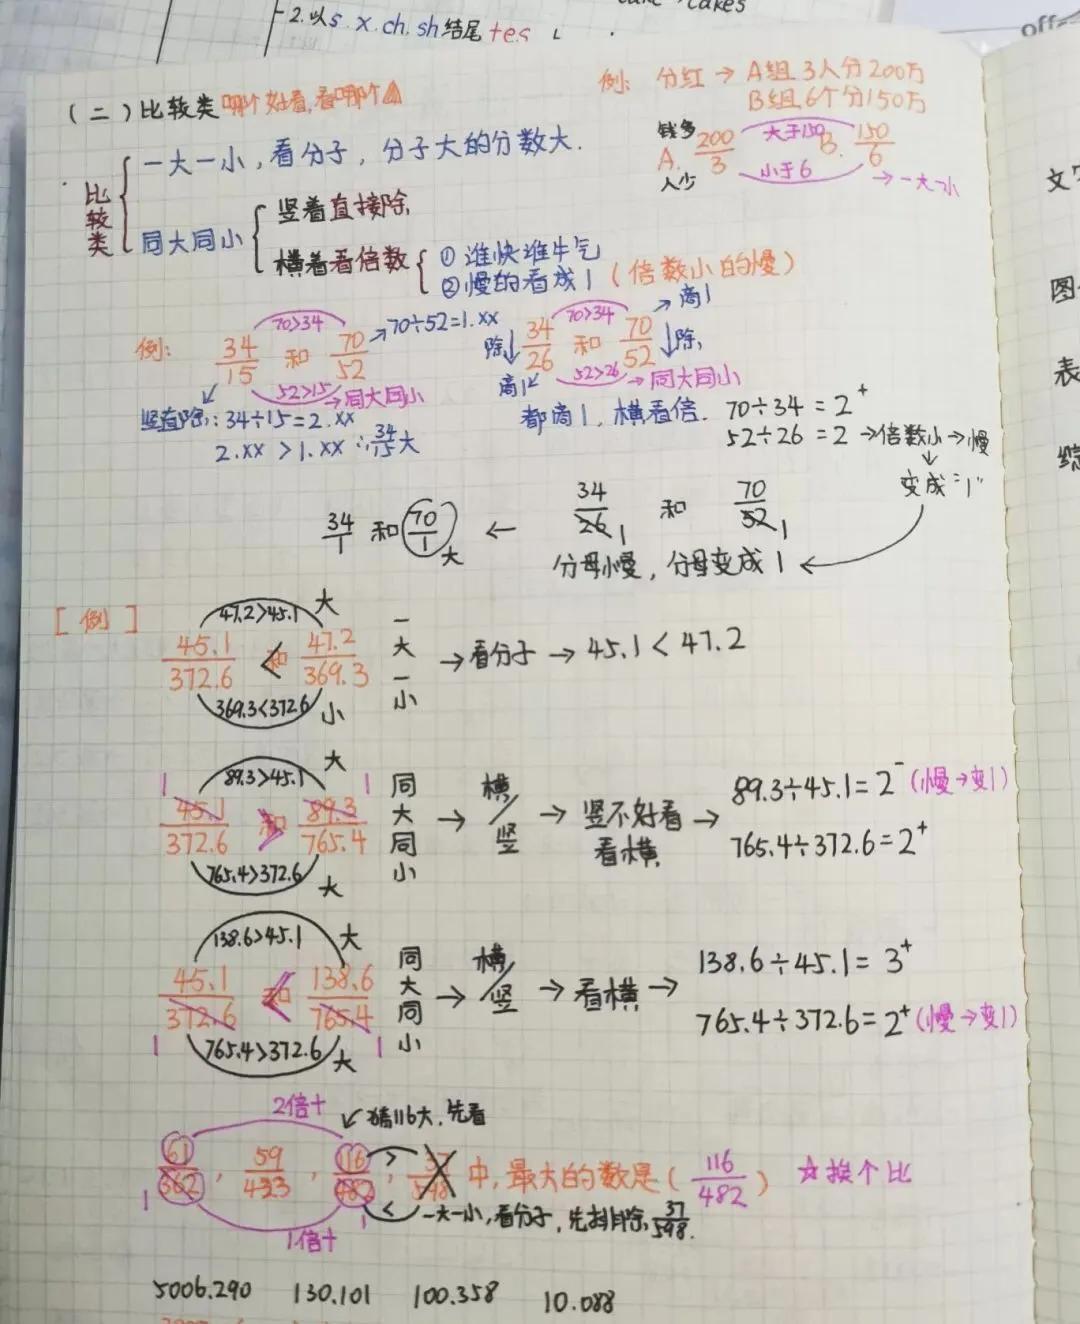 2.以s.x.ch.sh结尾+es
cakes
例: 分红 → A组 3人分200万
B组 6个分150万
(二)比较类 哪个好看,看哪个
钱多 A. 200/3 大于150 B. 150/6
人少 小于6 → 一大一小
比较类
一大一小,看分子,分子大的分数大.
同大同小
竖着直接除
横着看倍数
① 谁快谁牛气
② 慢的看成1(倍数小的慢)
例: 34/15 和 70/52 70>34 → 70÷52=1.xx
52>15 → 同大同小
竖着除: 34÷15=2.xx
2.xx > 1.xx ∴ 34/15大
除 34/26 和 70/52 70>34 → 商1
除
商1 52>26 → 同大同小
都商1,横看倍. 70÷34=2⁺
52÷26=2 → 倍数小 → 慢
变成"1"
34/1 和 70/1 大 ← 34/26 1 和 70/52 1
分母慢,分母变成1
[例]
47.2>45.1 大
45.1/372.6 和 < 47.2/369.3 一大一小 → 看分子 → 45.1<47.2
369.3<372.6 小
89.3>45.1 大
1 45.1/372.6 和 > 1 89.3/765.4 同大同小 → 横/竖 → 竖不好看 看横 → 89.3÷45.1=2⁻(慢→变1)
765.4÷372.6=2⁺
765.4>372.6 大
138.6>45.1 大
45.1/372.6 和 < 138.6/765.4 同大同小 → 横/竖 → 看横 → 138.6÷45.1=3⁺
765.4÷372.6=2⁺(慢→变1)
1 765.4>372.6 大 1
2倍+ 猜116大,先看
61/362, 59/433, 116/482, > 37/598 中,最大的数是(116/482) ☆挨个比
1 1 < 一大一小,看分子,先排除37/598.
1倍+
5006.290 130.101 100.358 10.088
文
图
表
综